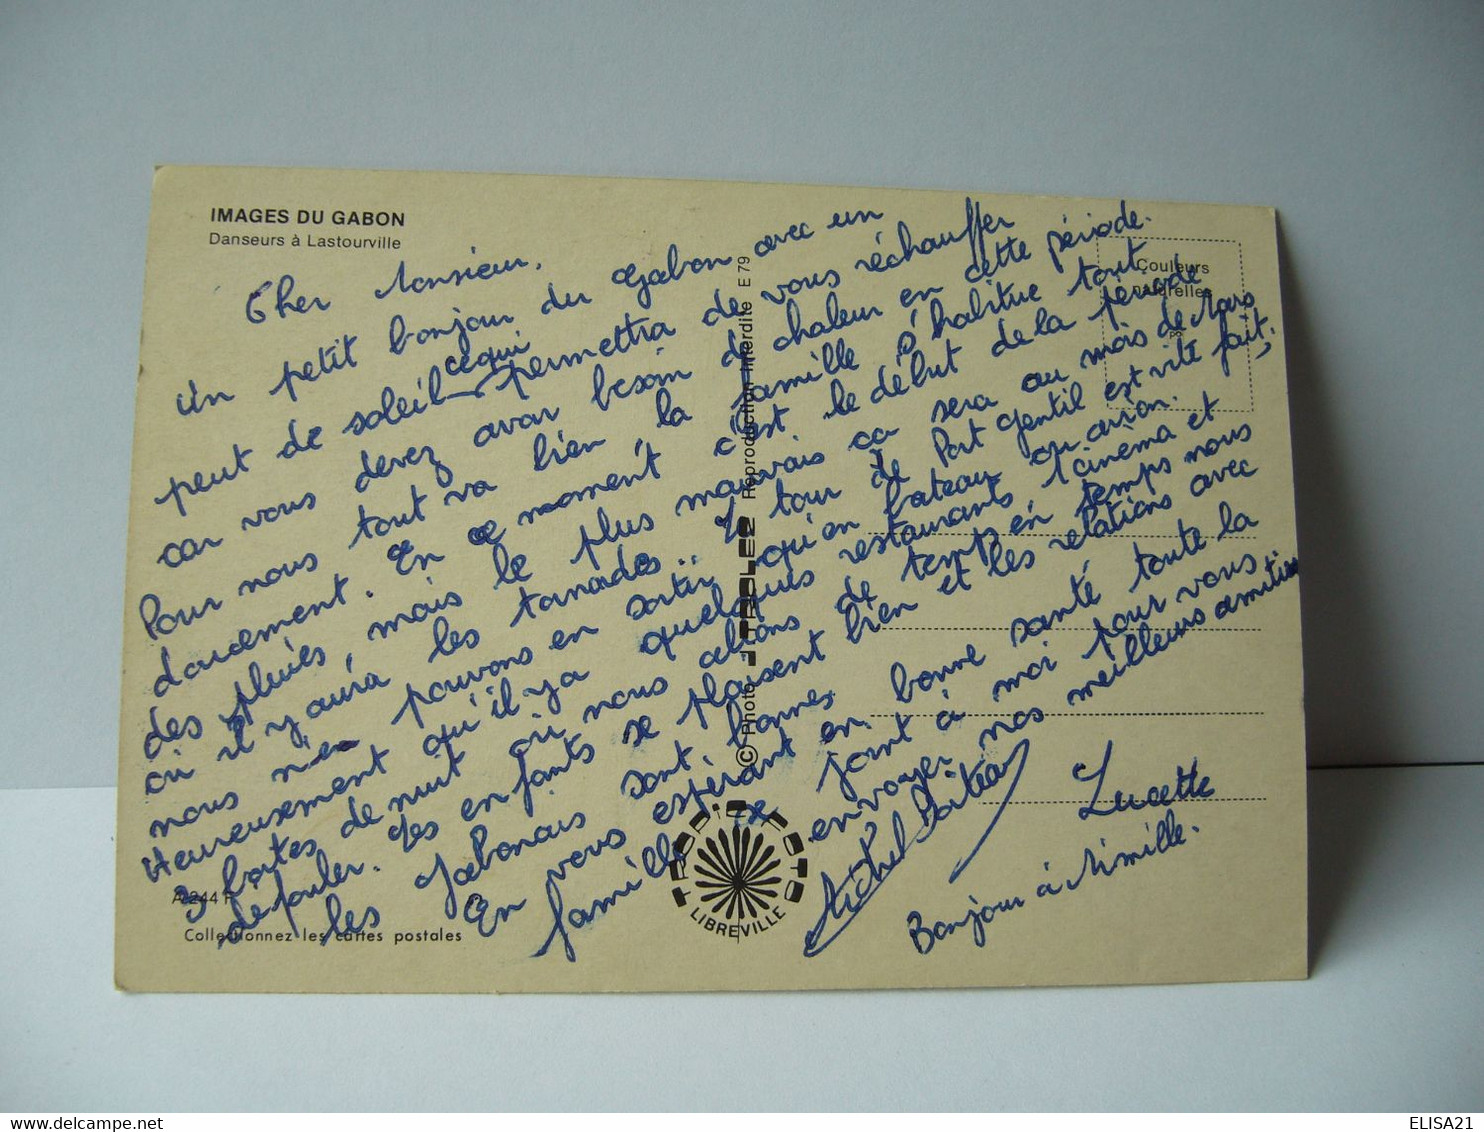 IMAGES DU GABON
Danseurs à Lastourville
Cher Monsieur.
Un petit bonjour du Gabon avec un
peut de soleil cequi permettra de vous réchauffer
car vous devez avoir besoin de chaleur en cette période.
Pour nous tout va bien, la famille s'habitue tout
doucement. En ce moment c'est le début de la période
des pluies, mais le plus mauvais ca sera au mois de Mars
où il y aura les tornades.. Le tour de Port gentil est vite fait,
nous n'en pouvons en sortir qu'en bateau ou avion.
Heureusement qu'il y a quelques restaurants, 1 cinéma et
3 boites de nuit où nous allons de temps en temps nous
défouler. Les enfants se plaisent bien et les relations avec
les Gabonais sont bonnes
En vous espérant en bonne santé toute la
famille se joint à moi pour vous
envoyer nos meilleurs amitiés
Lucette
Bonjour à Mimille.
Couleurs
naturelles
© Photo TROLEZ Reproduction interdite E 79
TROPIC PHOTO
LIBREVILLE
A 244 F
Collectionnez les cartes postales
delcampe.net
ELISA21